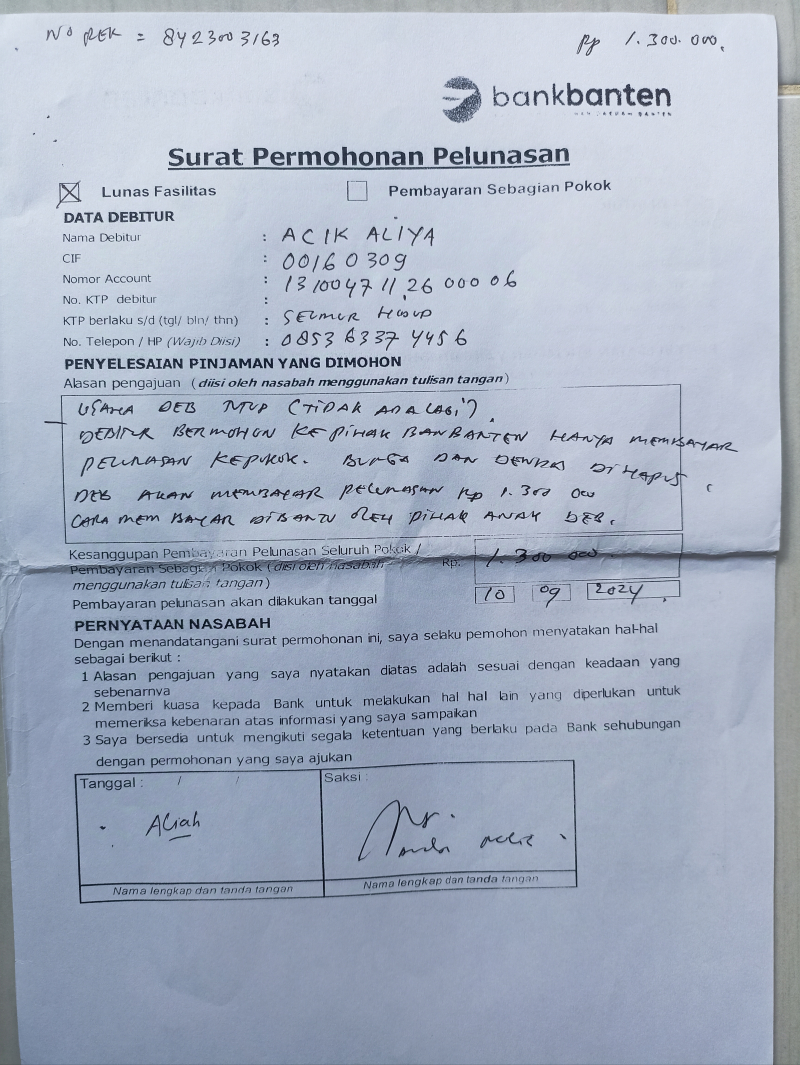 No REK = 8423003163
Rp 1.300.000,
bankbanten
Surat Permohonan Pelunasan
Lunas Fasilitas
Pembayaran Sebagian Pokok
DATA DEBITUR
Nama Debitur : ACIK ALIYA
CIF : 00160309
Nomor Account : 1310047112600006
No. KTP debitur :
KTP berlaku s/d (tgl/ bln/ thn) : SEUMUR HIDUP
No. Telepon / HP (Wajib Diisi) : 085363374456
PENYELESAIAN PINJAMAN YANG DIMOHON
Alasan pengajuan (diisi oleh nasabah menggunakan tulisan tangan)
USAHA DEB TUTUP (TIDAK ADA LAGI).
DEBITUR BERMOHON KE PIHAK BANBANTEN HANYA MEMBAYAR
PELUNASAN KEPOKOK. BUNGA DAN DENDA DI HAPUS.
DEB AKAN MEMBAYAR PELUNASAN Rp 1.300 000
CARA MEMBAYAR DIBANTU OLEH PIHAK ANAK DEB.
Kesanggupan Pembayaran Pelunasan Seluruh Pokok /
Pembayaran Sebagian Pokok (diisi oleh nasabah Rp. 1.300 000
menggunakan tulisan tangan)
Pembayaran pelunasan akan dilakukan tanggal 10 09 2024
PERNYATAAN NASABAH
Dengan menandatangani surat permohonan ini, saya selaku pemohon menyatakan hal-hal
sebagai berikut :
1 Alasan pengajuan yang saya nyatakan diatas adalah sesuai dengan keadaan yang
sebenarnya
2 Memberi kuasa kepada Bank untuk melakukan hal hal lain yang diperlukan untuk
memeriksa kebenaran atas informasi yang saya sampaikan
3 Saya bersedia untuk mengikuti segala ketentuan yang berlaku pada Bank sehubungan
dengan permohonan yang saya ajukan
Tanggal : / /
Saksi :
Aliah
Nama lengkap dan tanda tangan
Nama lengkap dan tanda tangan